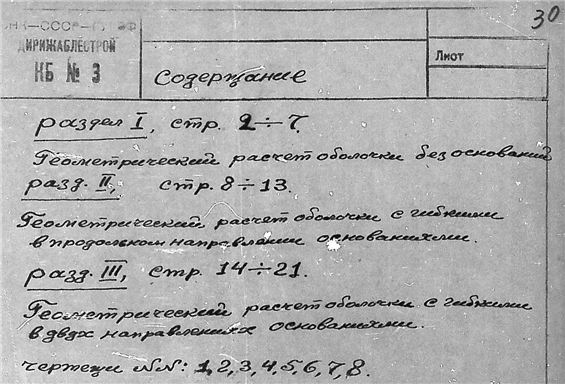 30
НК—СССР—ГУГВФ
ДИРИЖАБЛЕСТРОЙ
КБ № 3
Лист
Содержание
раздел I, стр. 2÷7.
Геометрический расчет оболочки без оснований
разд. II, стр. 8÷13.
Геометрический расчет оболочки с гибкими
в продольном направлении основаниями.
разд. III, стр. 14÷21.
Геометрический расчет оболочки с гибкими
в двух направлениях основаниями.
чертежи №№: 1,2,3,4,5,6,7,8.